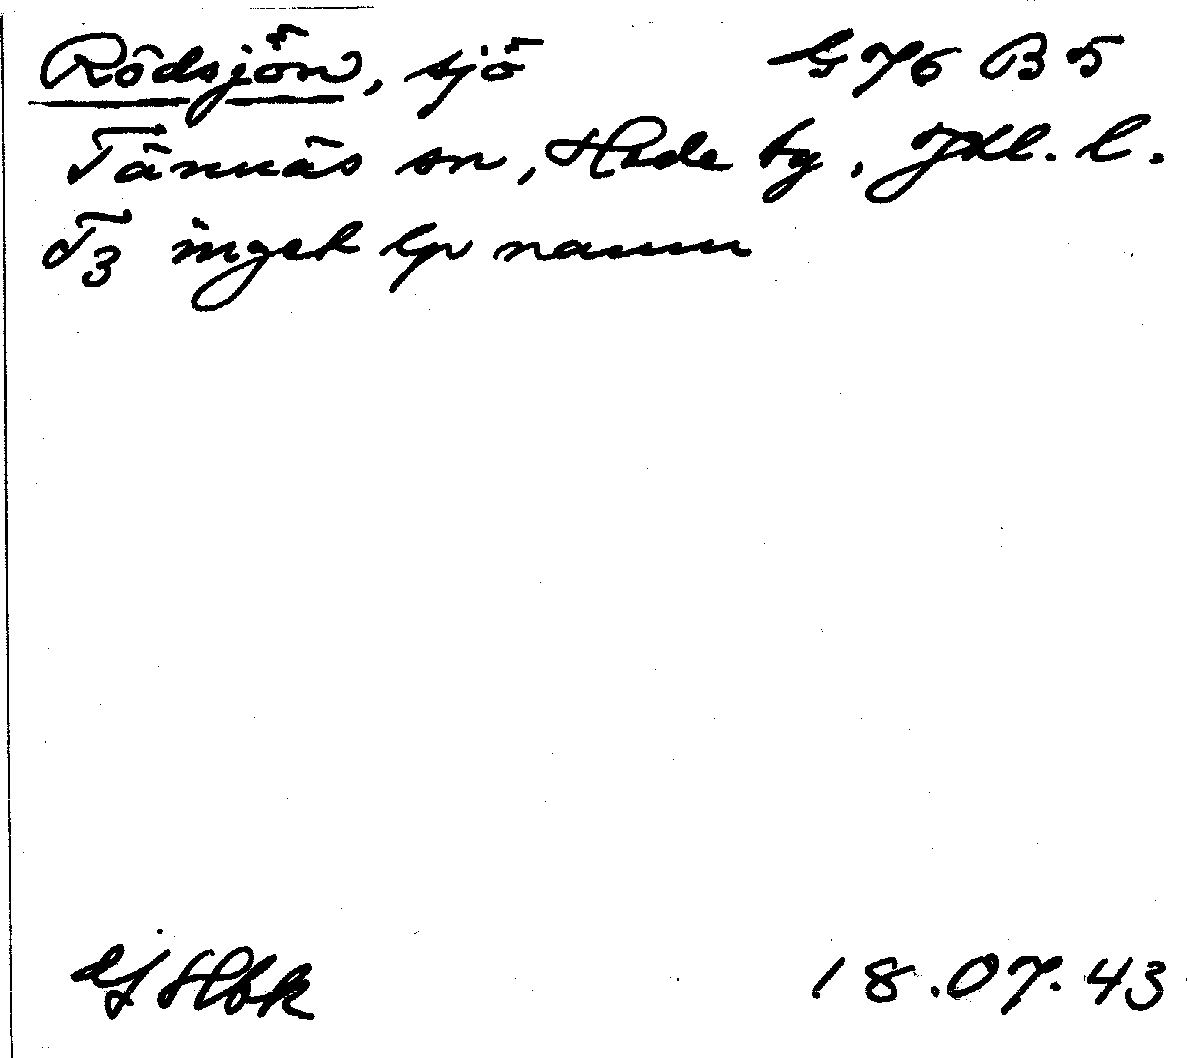 Rödsjön, sjö G 76 B 5
Tännäs sn, Hede tg, Jtl. l.
T3 inget lp namn
18.07.43